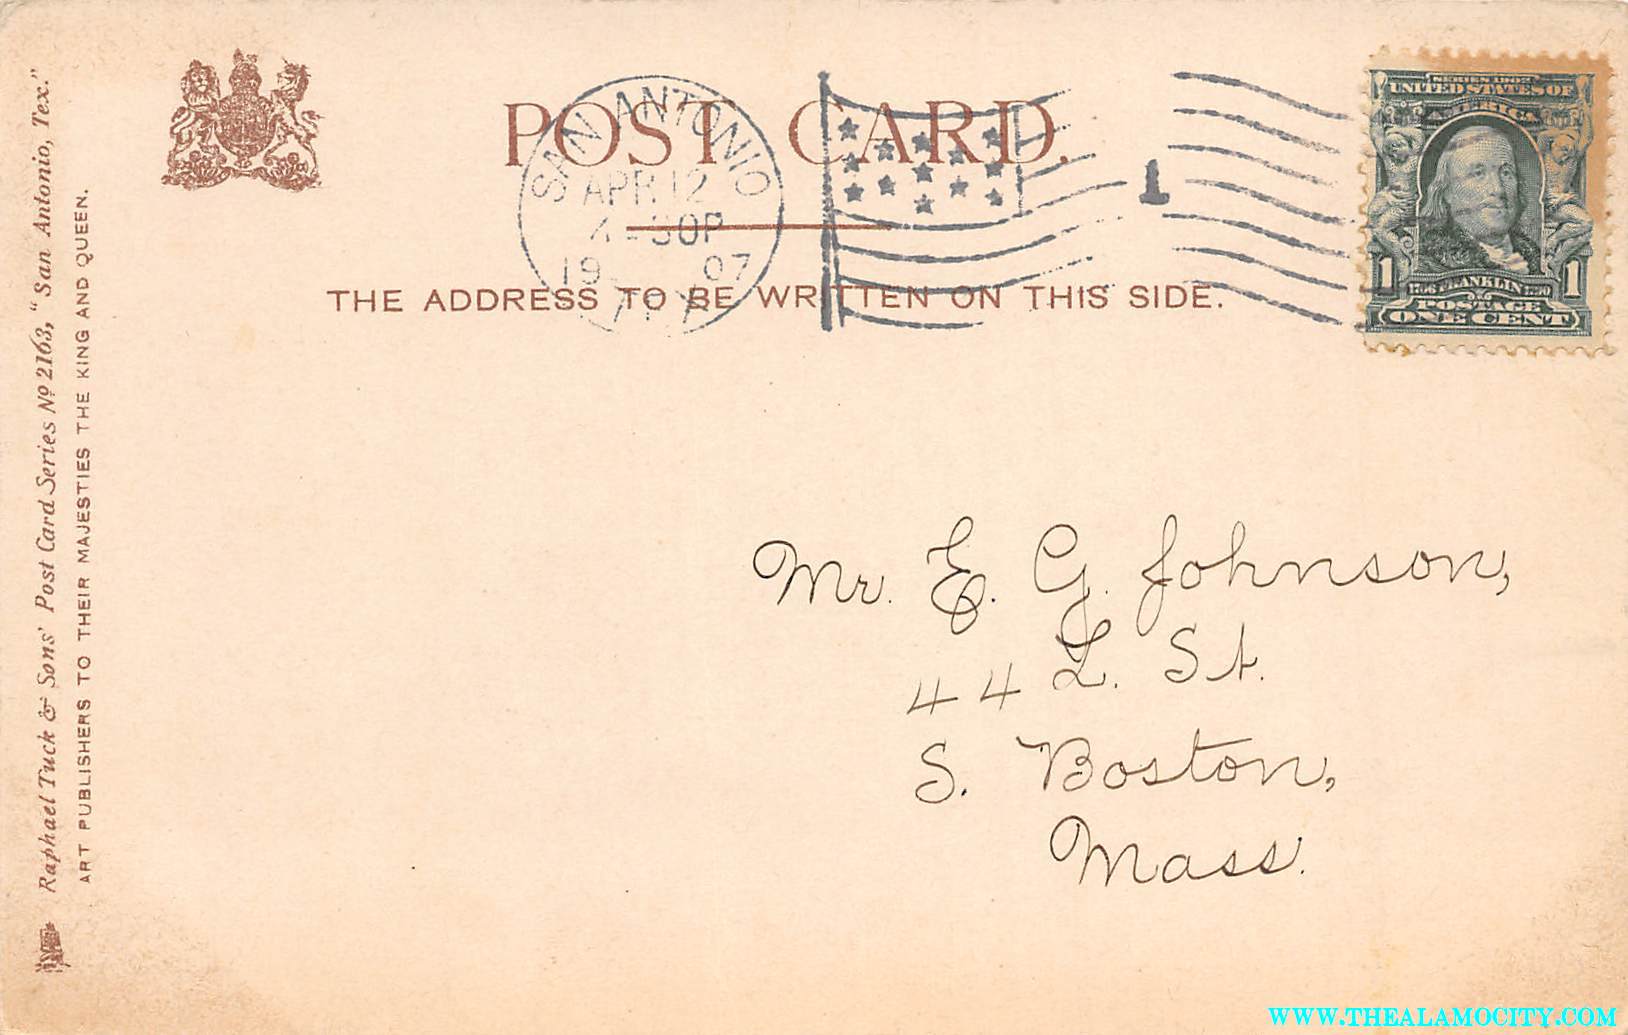 POST CARD.
SAN ANTONIO
APR 12
30P
1907
TEX
1
SERIES 1902
UNITED STATES OF
AMERICA
1 FRANKLIN 1
POSTAGE
ONE CENT
THE ADDRESS TO BE WRITTEN ON THIS SIDE.
Mr. E. G. Johnson,
44 L. St.
S. Boston,
Mass.
Raphael Tuck & Sons' Post Card Series No 2163, "San Antonio, Tex."
ART PUBLISHERS TO THEIR MAJESTIES THE KING AND QUEEN.
WWW.THEALAMOCITY.COM